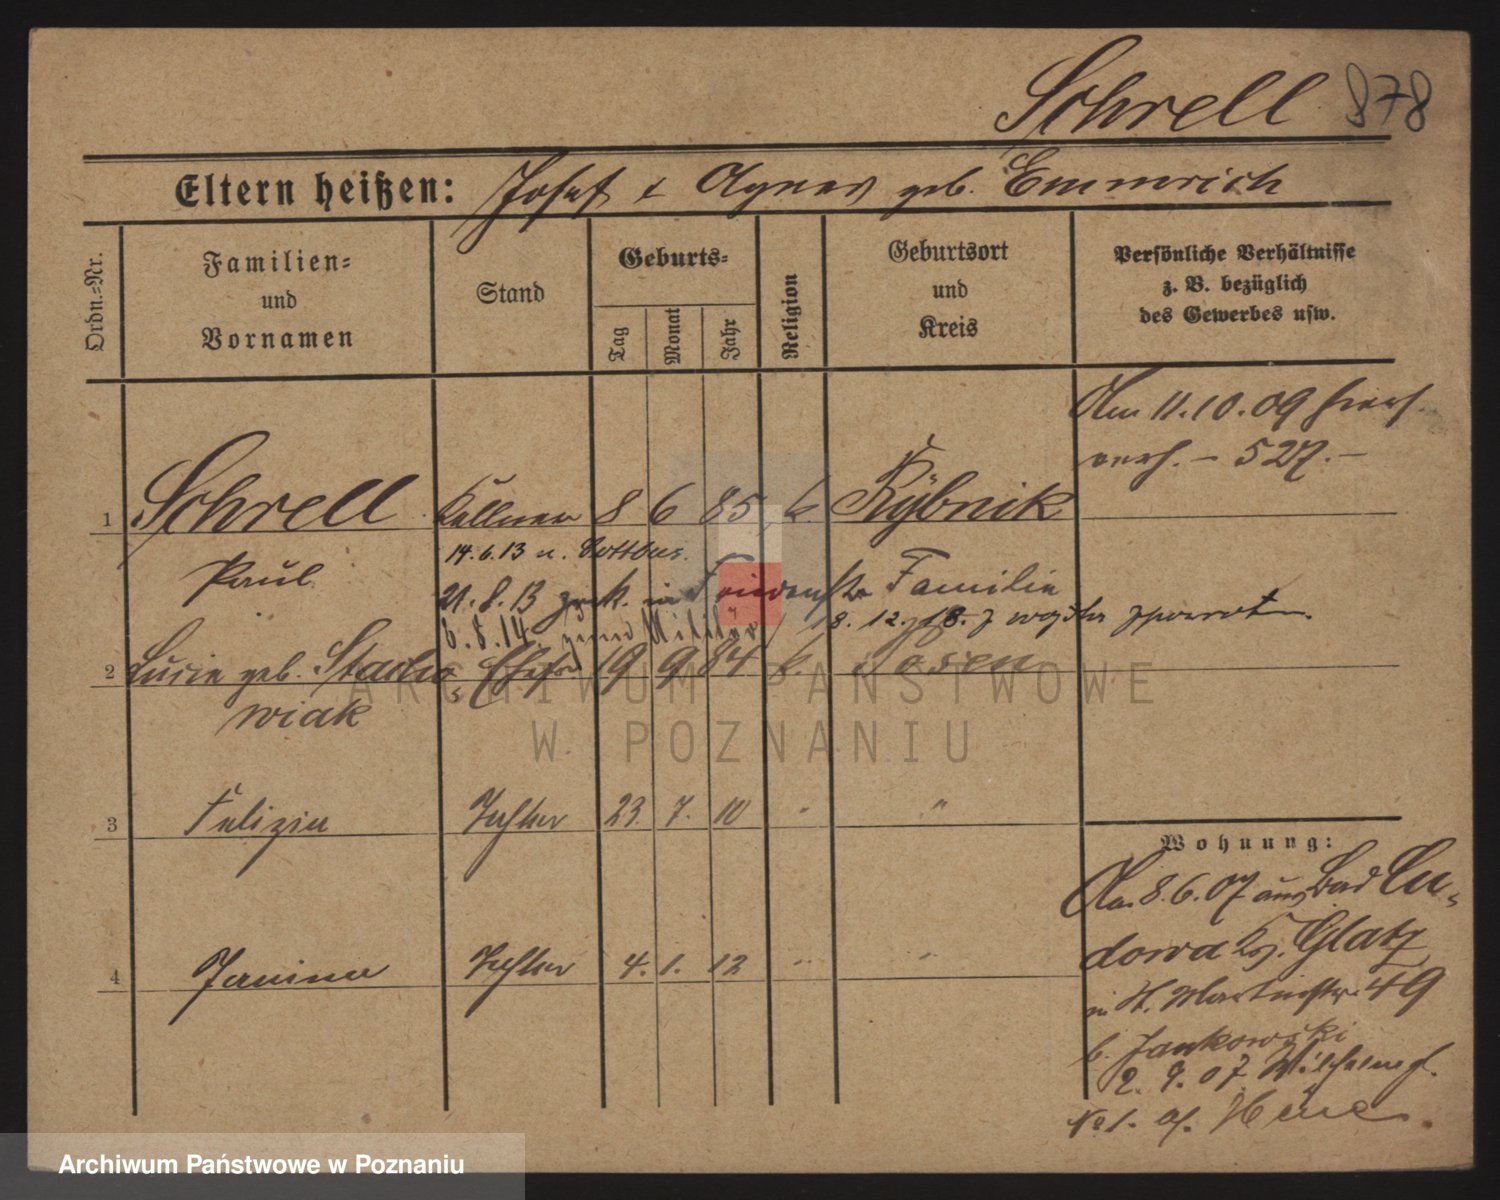 Schrell 878
Eltern heißen: Josef & Agnes geb. Emmerich
Ordn.=Nr.
Familien=
und
Vornamen
Stand
Geburts=
Tag
Monat
Jahr
Religion
Geburtsort
und
Kreis
Persönliche Verhältnisse
z. B. bezüglich
des Gewerbes usw.
Am 11.10.09 hier
verh. – 527. –
1 Schrell Kellner 8 6 85 k. Rybnik
Paul
14.6.13 n. Cottbus.
21.8.13 zrck. in Friedenstr Familie
6.8.14. zum Militär 18.12.18. z
2 Lucie geb. Stacho= Ehefr 19 9 84 k. Posen
wiak
3 Felizia Tochter 23. 7. 10 " "
4 Janina Tochter 4. 1. 12 " "
Wohnung:
Am 8.6.07 aus Bad Cu=
dowa Kr. Glatz
in St. Martinstr. 49
b. Jankowski
2. 9. 07. Wilhelmpl.
No 1. bei
ARCHIWUM PAŃSTWOWE
W POZNANIU
Archiwum Państwowe w Poznaniu